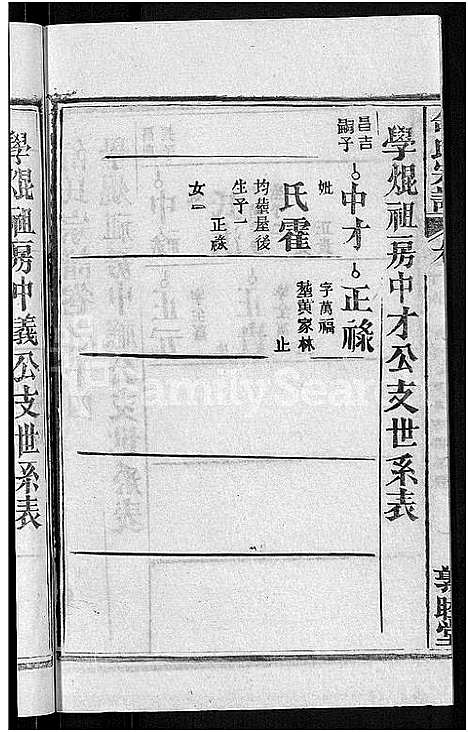 學焜祖房中才公支世系表
昌吉
嗣子
中才
妣
氏霍
均塟屋後
生子一
正祿
女二
正祿
字萬福
塟黃家林
止
敦睦堂
學焜祖房中義公支世系表
FamilySearch